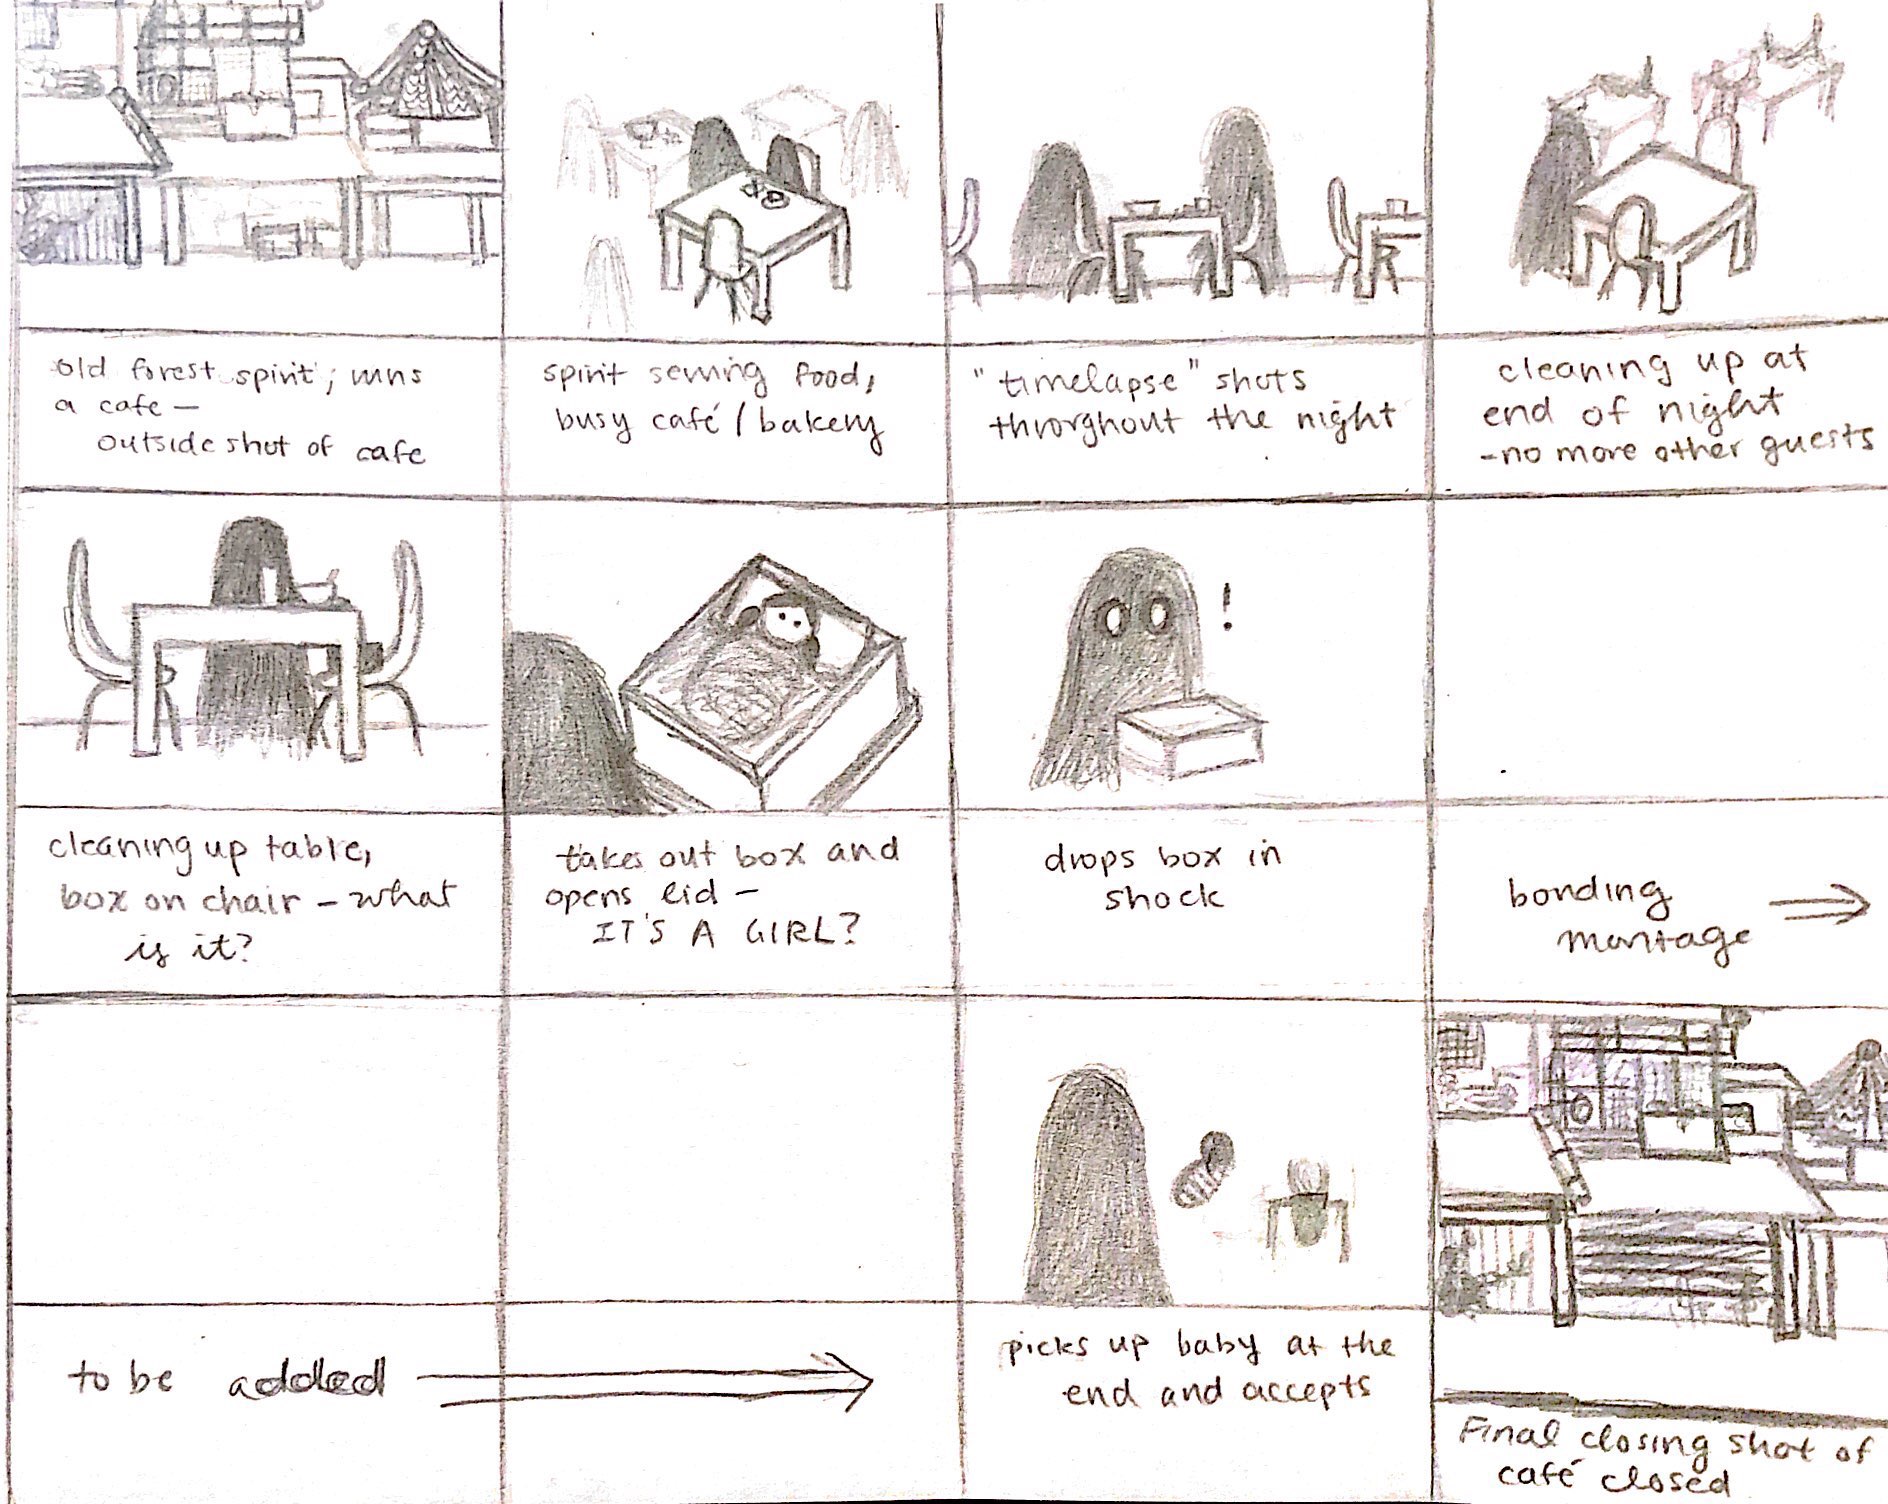 old forest spirit; runs
a cafe —
outside shot of cafe
spirit serving food,
busy café / bakery
"timelapse" shots
throughout the night
cleaning up at
end of night
- no more other guests
!
cleaning up table,
box on chair - what
is it?
takes out box and
opens lid —
IT'S A GIRL?
drops box in
shock
bonding
montage
to be added
picks up baby at the
end and accepts
Final closing shot of
café closed